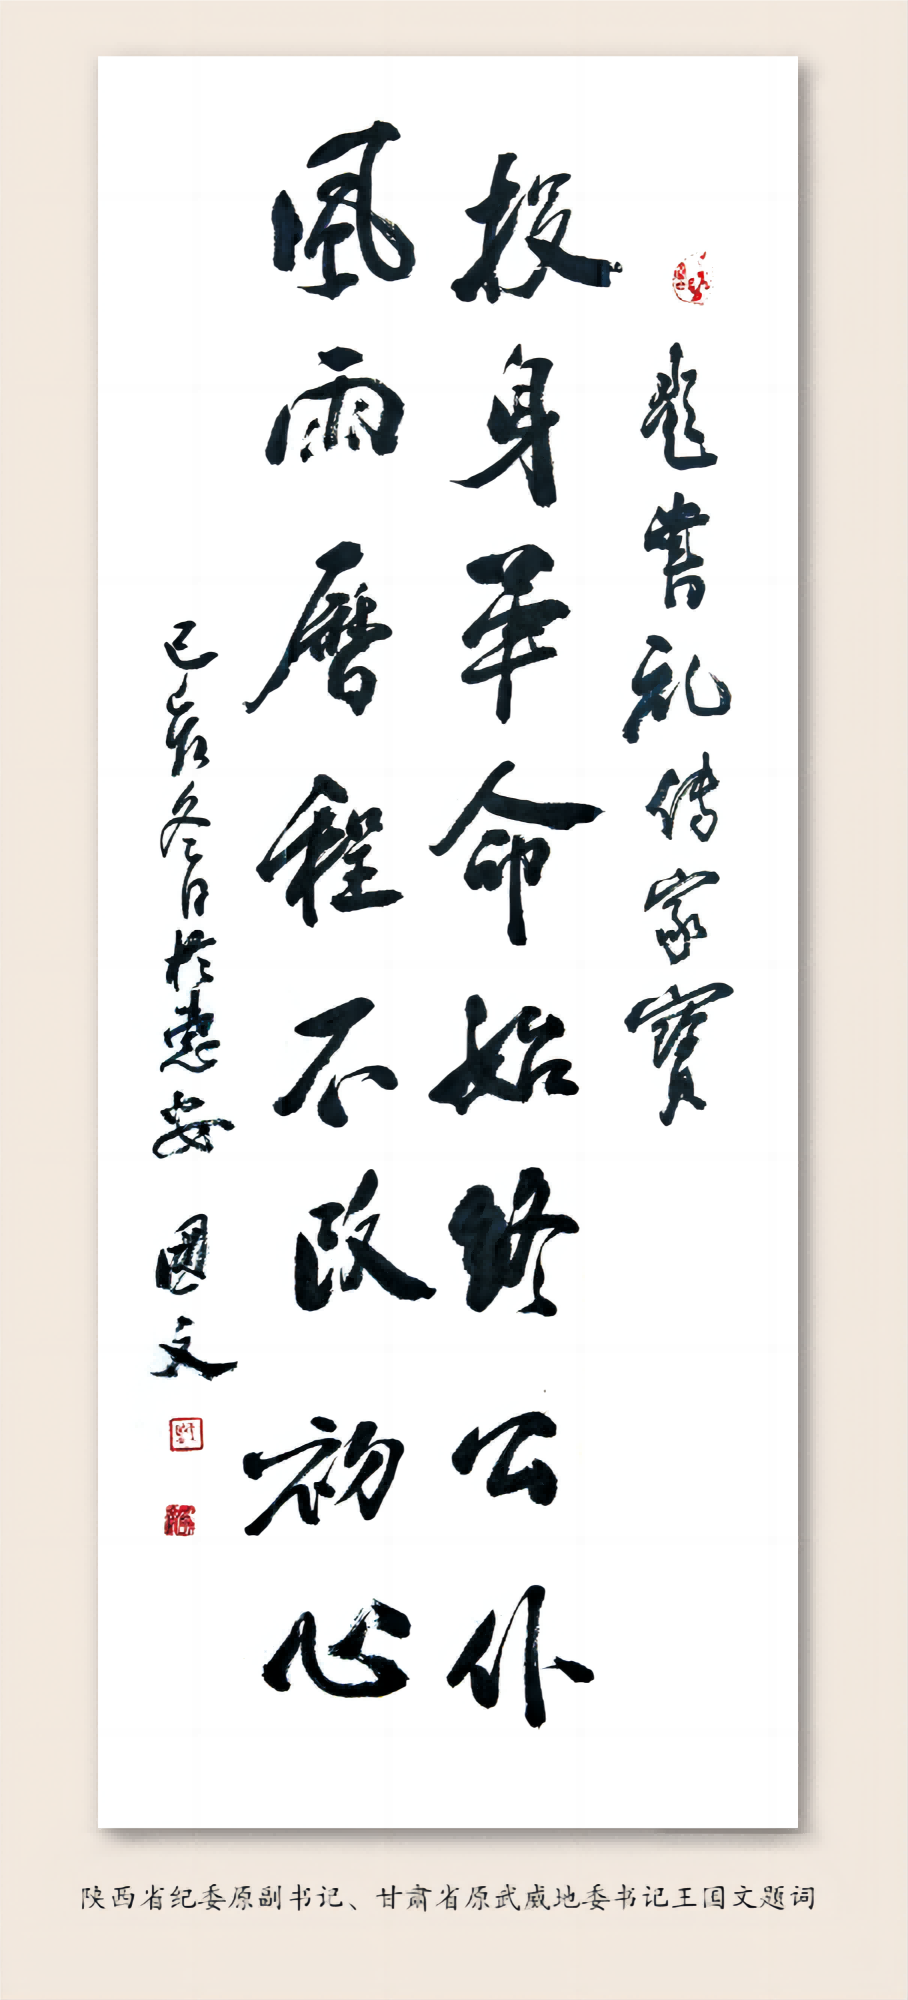 题书礼传家寳
投身革命始终公仆
風雨曆程不改初心
己亥冬日於惠安
國文
陕西省纪委原副书记、甘肃省原武威地委书记王国文题词